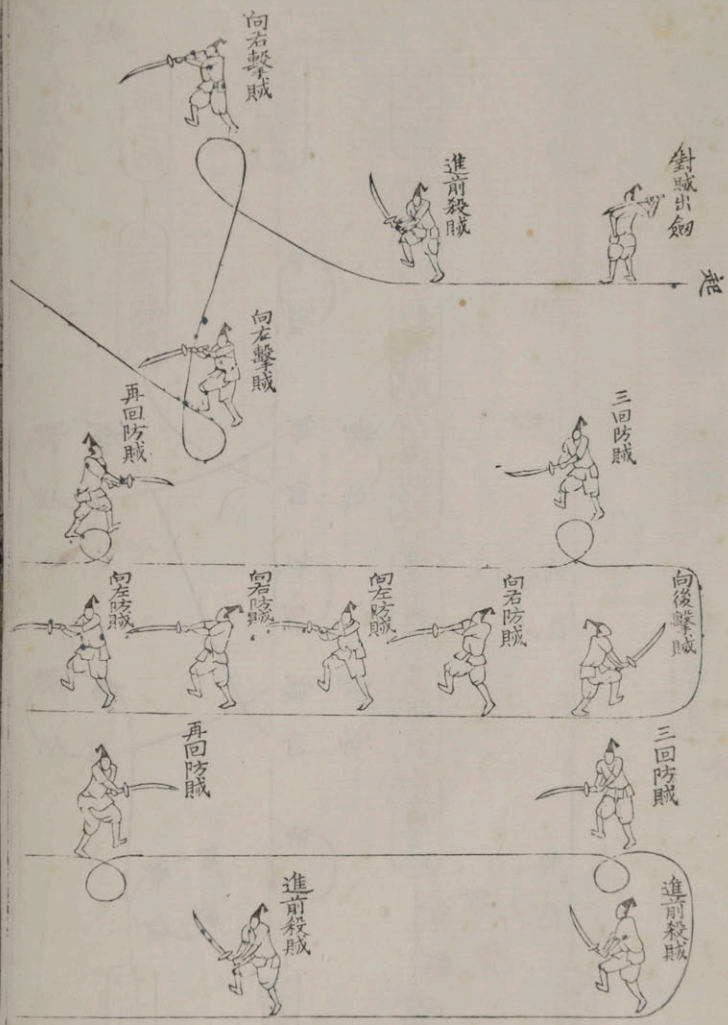 起
對賊出劒
進前殺賊
向右擊賊
向左擊賊
三回防賊
再回防賊
向後擊賊
向右防賊
向左防賊
向右防賊
向左防賊
三回防賊
再回防賊
進前殺賊
進前殺賊